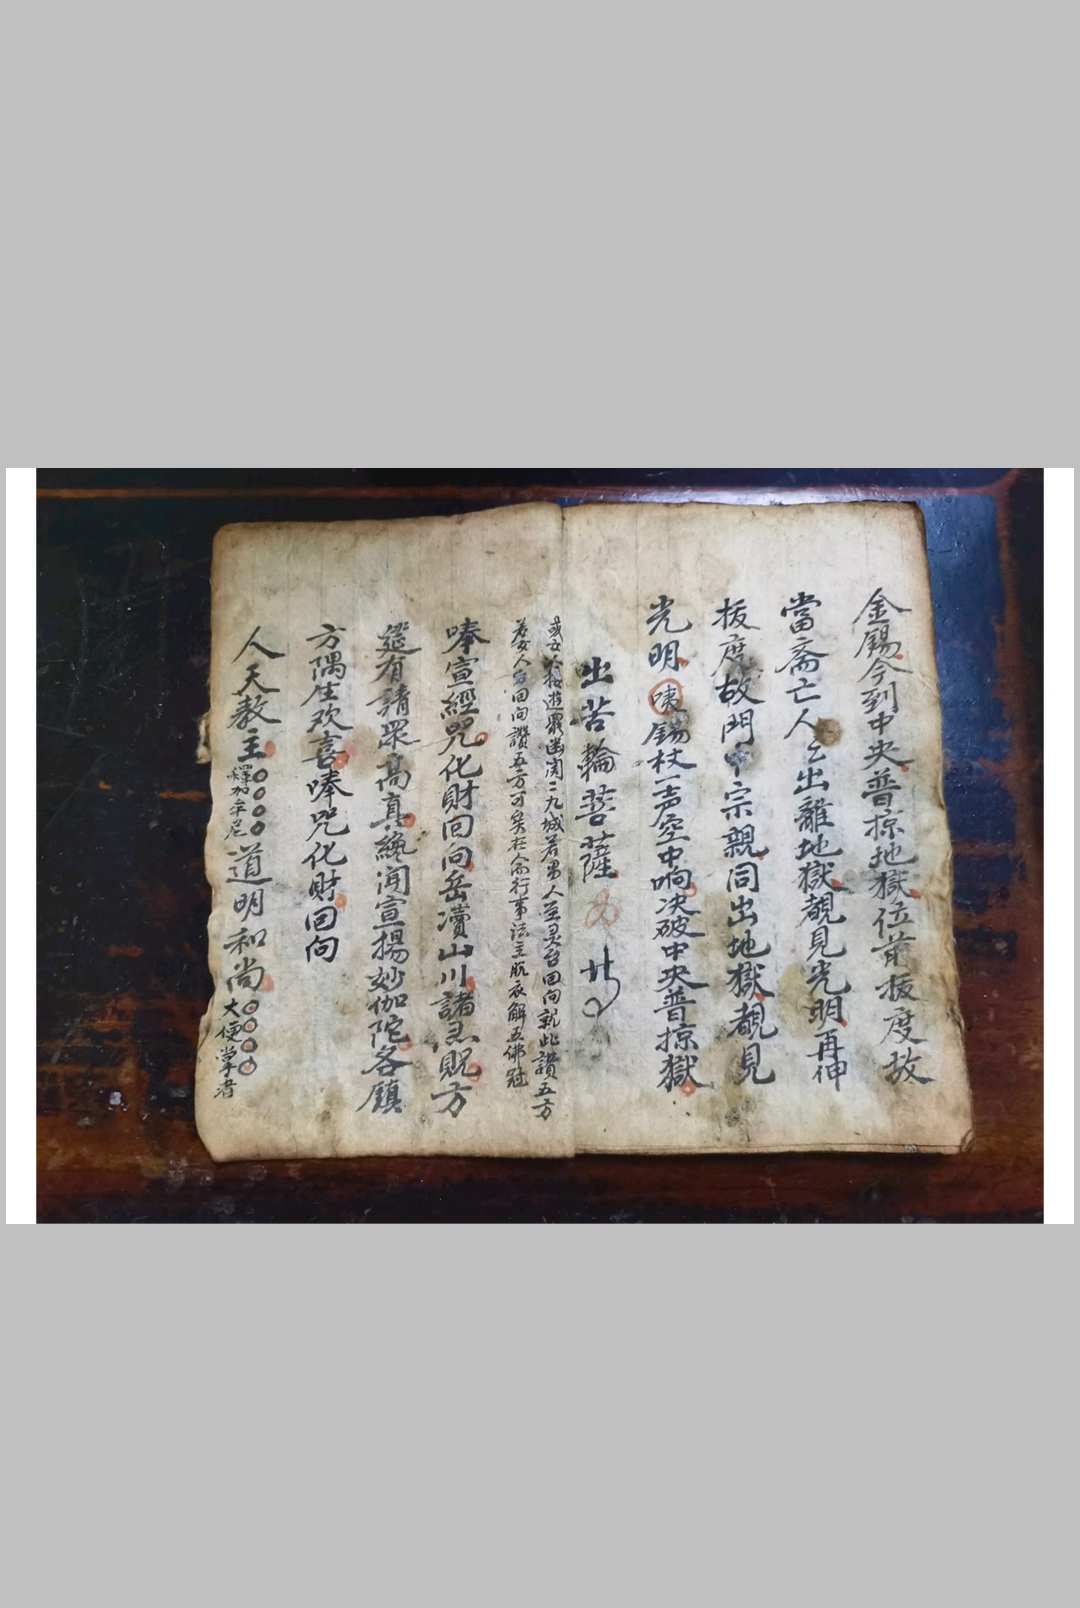 金錫今到中央普掠地獄位前拔度故
當斎亡人公出離地獄覩見光明再伸
拔度故門中宗親同出地獄覩見
光明 𠴨錫杖一声空中响决破中央普掠獄
出苦輪菩薩
或云 遊獄幽関二九城若男人至灵台回向就此讚五方
若女人 回向讚五方可矣 行事法主脱衣解五佛冠
唪宣經咒化財回向岳瀆山川諸 貺方
筵有請眾高真纔闻宣揚妙伽陀各鎮
方隅生欢喜唪咒化財回向
人天教主釋加牟尼〇〇〇〇道明和尚〇〇〇〇大 掌者